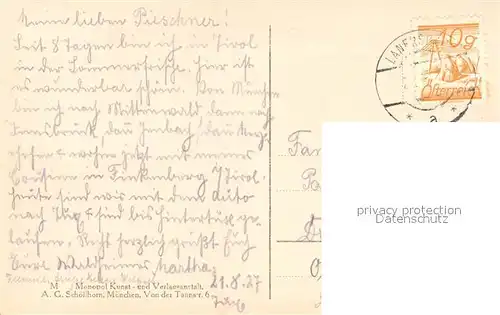 Meine lieben Pieschner!
Seit 8 Tagen bin ich in Tirol
in der Sommerfrische. Hier ist
es wunderbar schön. Von München
bin ich nach Mittenwald dann nach
Innsbruck, dann Jenbach, dann
u. wohne jetzt mit meiner
Cousine in Finkenberg i/Tirol.
Heute sind wir mit dem Auto
nach Tux u. sind bis Hintertux ge-
laufen. Recht herzlich grüßt Euch
Eure Waldheimer Martha.
21.8.27
Tux
M Monopol Kunst- und Verlagsanstalt,
A. G. Schöllhorn, München, Von der Tannstr. 6
LANER
a
10g
Österreich
privacy protection
Datenschutz